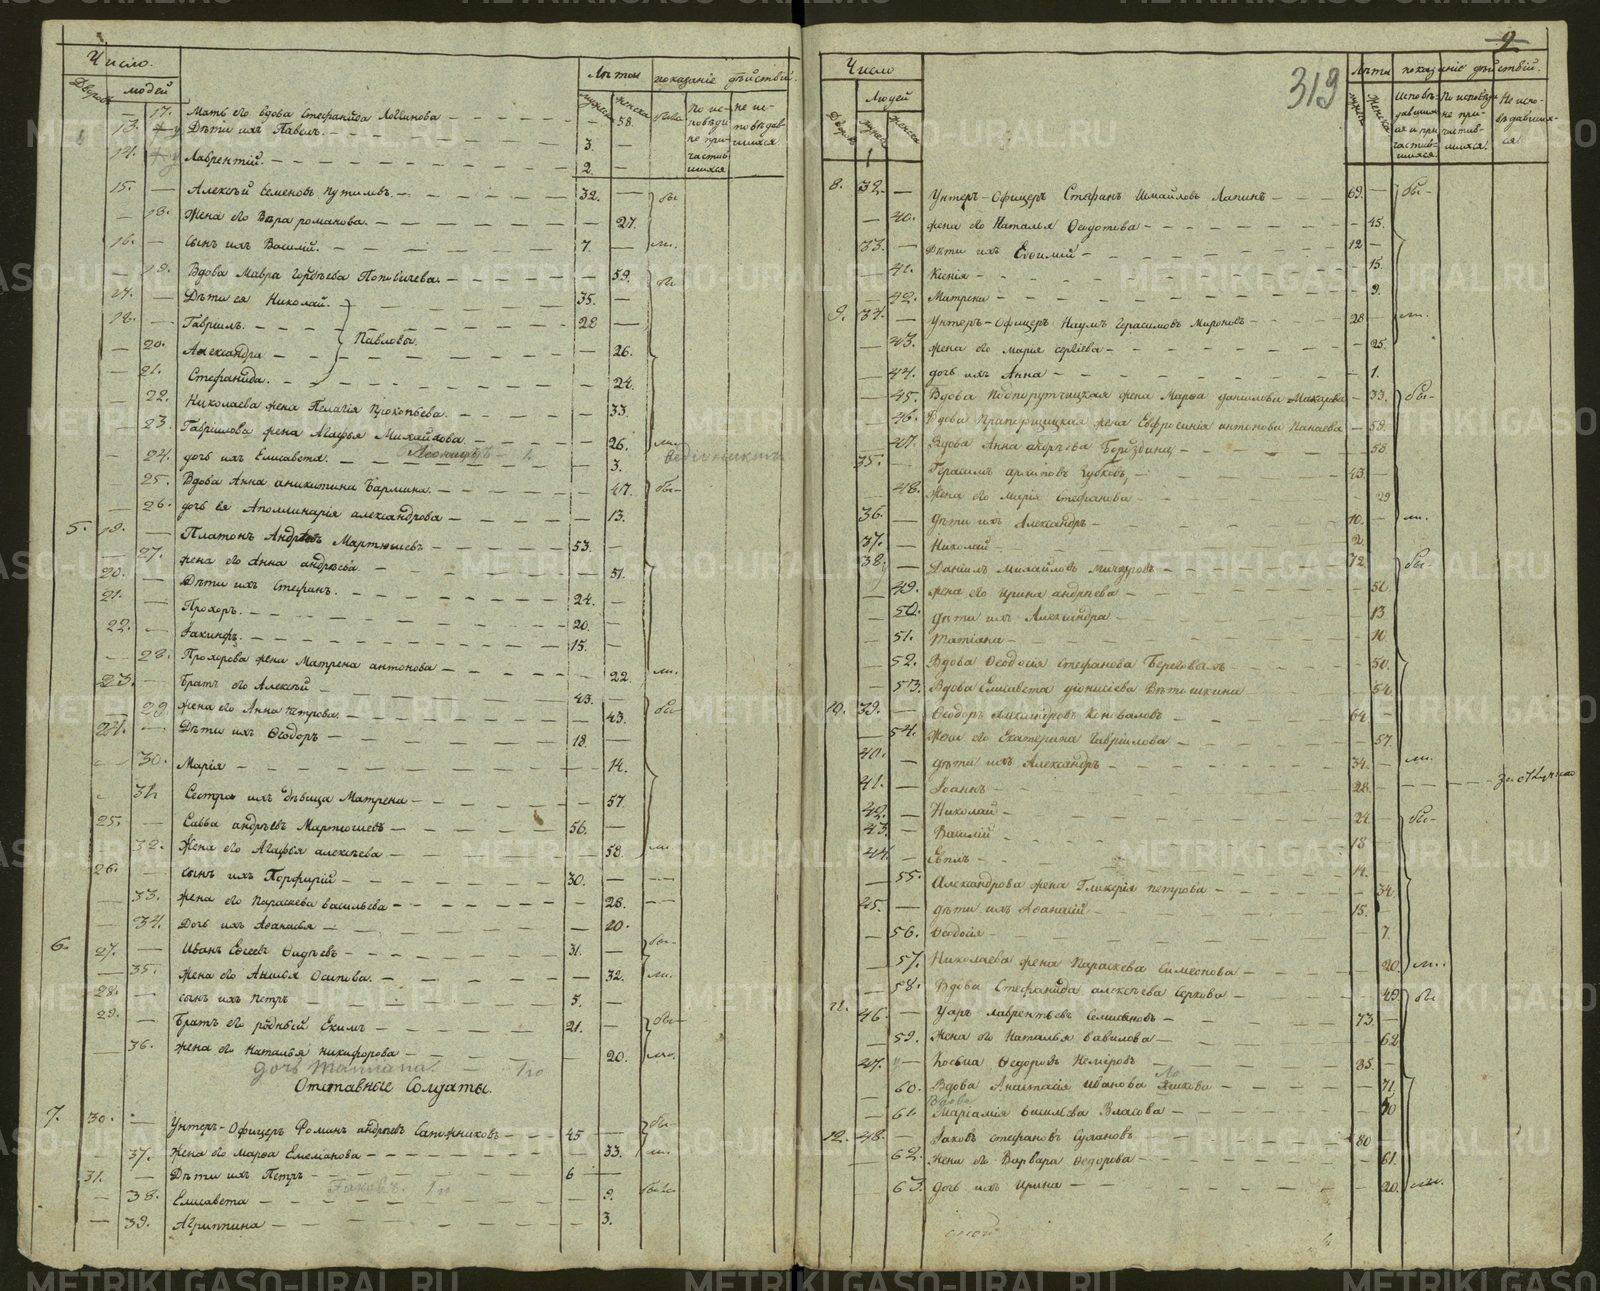 Число.
Дворовъ
людей
Лѣты
показаніе дѣйствій.
мужска
женска
По исповѣди не причастившихся
не исповѣдавшихся
17. Мать его вдова Стефанида Логинова 58. были
13. Дѣти ихъ Павелъ. 3.
14. Лаврентій. 2
15. Алексѣй Семеновъ Путиловъ 32. бы
18. Жена его Вѣра романова. 27.
16. сынъ ихъ Василій. 7. ли.
19. Вдова Мавра Гордѣева 59. бы
17. Дѣти ея Николай. 35.
18. Гавріилъ. 28
Павловы.
20. Александра 26.
21. Стефанида. 24.
22. Николаева жена Пелагія Прокопьева. 33.
23. Гавріилова жена Агафья Михайлова. 26. ли.
24. дочь ихъ Елисавета. 3.
25. Вдова Анна аникитина 47. бы
26. дочь ея Аполлинарія александрова 13.
5. 19. Платонъ Андреевъ Мартюшевъ 53.
27. жена его Анна андрѣева 51.
20. Дѣти ихъ Стефанъ. 24.
21. Прохоръ. 20.
22. Іакинфъ. 15.
28. Прохорова жена Матрена антонова 22. ли.
23. Братъ его Алексѣй 43.
29 жена его Анна петрова. 43. бы
24. Дѣти ихъ Ѳеодоръ 18.
30. Марія 14.
31. Сестра ихъ дѣвица Матрена 57
25. Савва андрѣевъ Мартюшевъ 56.
32. Жена его Агафья алексѣева 58. ли
26. сынъ ихъ Порфирій 30.
33. жена его Параскева васильева 28.
34. Дочь ихъ Аѳанасья 20.
6. 27. Иванъ Евсеевъ 31. бы
35. жена его Анисья Осипова. 32. ли.
28. сынъ ихъ Петръ 5.
29. Братъ его родный Екимъ 21. бы
36. жена его Наталья никифорова 20. ли.
дочь Татіана.
Отставные Солдаты.
7. 30. Унтеръ-Офицеръ Фоминъ андреевъ Сапожниковъ 45 бы
37. Жена его Марѳа Емеліанова 33. ли.
31. Дѣти ихъ Петръ 6
Іаковъ.
38. Елисавета 9. были
39. Агриппина 3.
2
319
Число
Людей
Дворов
мужск
женска
Лѣты
показаніе дѣйствій.
мужска
женска
Исповѣдавшихся и причастившихся
По исповѣди не причастившихся.
Не исповѣдавшихся
8. 32. Унтеръ-Офицеръ Стефанъ Измайловъ Лапинъ 69. бы
40. жена его Наталья Ѳедотова 45.
33. Дѣти ихъ Евфимій 12
41. Ксенія 15.
42. Матрена 9.
9. 34. Унтеръ-Офицеръ Наумъ Герасимовъ Мироновъ 28 ли.
43. жена его Марія сергіева 25.
44. дочь ихъ Анна 1.
45. Вдова Подпорутчицкая жена Марѳа данилова Макарова 33. бы
46. Вдова Прапорщицкая жена Евфросинія антонова Панаева 59.
47. Вдова Анна андрѣева 58
35. Герасимъ архиповъ Зубковъ 43.
48. Жена его Марія Стефанова 29
36. Дѣти ихъ Александръ 10. ли.
37. Николай 2
38. Даніилъ Михайловъ 72. бы
49. жена его Ирина андрѣева 56
50. Дѣти ихъ Александра 13
51. Татіана 10.
52. Вдова Ѳеодосія Стефанова 50.
53. Вдова Елисавета діонисіева Вѣтошкина 54.
10. 39. Ѳеодоръ Александровъ Коноваловъ 64.
54. Жена его Екатерина Гавріилова 57.
40. дѣти ихъ Александръ 34. ли.
41. Іоаннъ 28.
42. Николай 24. бы
43. Василій 18
44. Евплъ 14.
55. Александрова жена Гликерія петрова 34.
45. дѣти ихъ Аѳанасій 15.
56. Ѳеодосія 7.
57. Николаева жена Параскева Симеонова 20. ли.
58. Вдова Стефанида алексѣева Серкова 49. бы
11. 46. Уаръ Лаврентьевъ 73.
59. Жена его Наталья вавилова 62
47. Косьма Ѳедоровъ Немтровъ 85.
60. Вдова Анастасія иванова 71.
Вдова
61. Маріамія васильева Власова 50
12. 48. Іаковъ Стефановъ Сулановъ 80
62. Жена его Варвара Ѳедорова 61.
63. дочь ихъ Ирина 20. ли.
METRIKI.GASO-URAL.RU